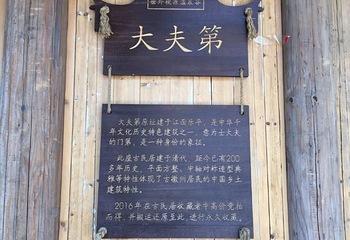 大夫第
大夫第原址建于江西乐平，是中华千
年文化历史特色建筑之一，意为士大夫
的门第，是一种身份的象征。
此屋古民居建于清代，距今已有200
多年历史，平面方整、中轴对称造型典
雅等特性体现了古徽州居民的中国乡土
建筑特性。
2016年在古民居收藏家中高价竞拍
而得，并搬运还原至此，进行永久收藏。